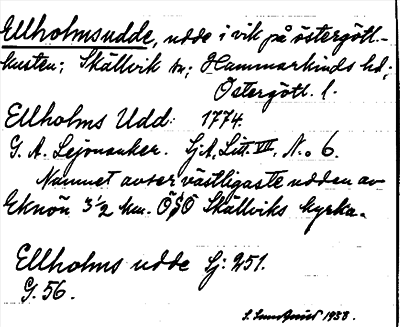 Ellholmsudde, udde i vik på östergötl.-
kusten; Skällvik sn; Hammarkinds hd;
Östergötl. l.
Ellholms Udd: 1774.
G. A. Lejonanker. SjA, Litt. VII, No. 6.
Namnet avser västligaste udden av
Eknön 3½ km. ÖSÖ Skällviks kyrka.
Ellholms udde Sj: 251.
G. 56.
S. 1933.